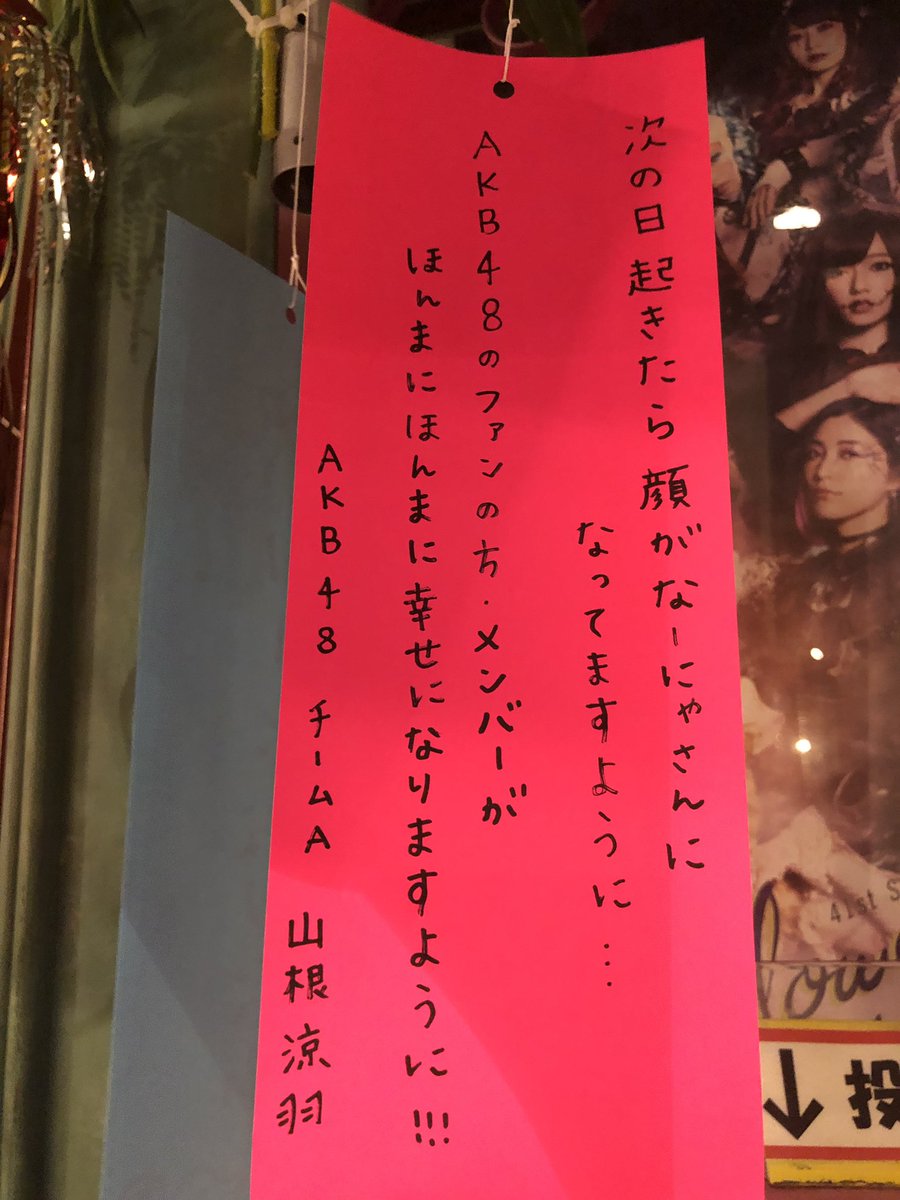 次の日 起きたら 顔がなーにゃさんに
なってますように…
AKB48のファンの方・メンバーが
ほんまにほんまに幸せになりますように!!!
AKB48 チームA 山根 涼羽
41st S
↓投